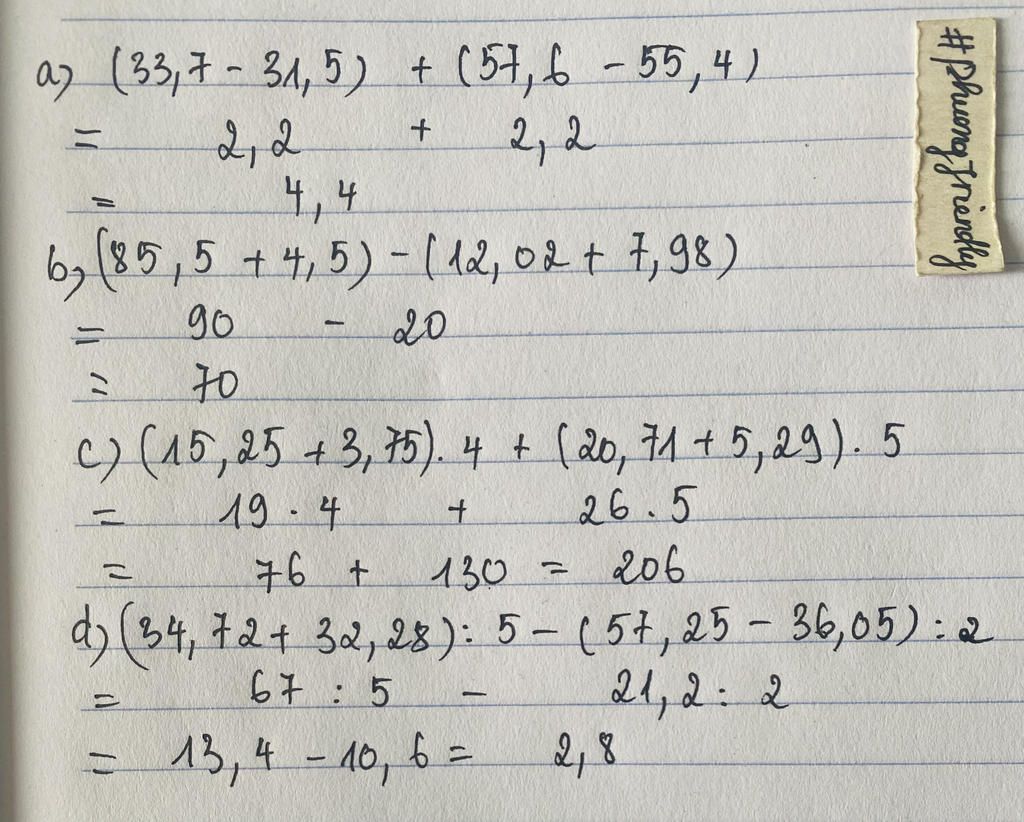 a) (33,7 - 31,5) + (57,6 - 55,4)
= 2,2 + 2,2
= 4,4
b) (85,5 + 4,5) - (12,02 + 7,98)
= 90 - 20
= 70
c) (15,25 + 3,75) . 4 + (20,71 + 5,29) . 5
= 19 . 4 + 26 . 5
= 76 + 130 = 206
d) (34,72 + 32,28) : 5 - (57,25 - 36,05) : 2
= 67 : 5 - 21,2 : 2
= 13,4 - 10,6 = 2,8
#PhuongFriendly